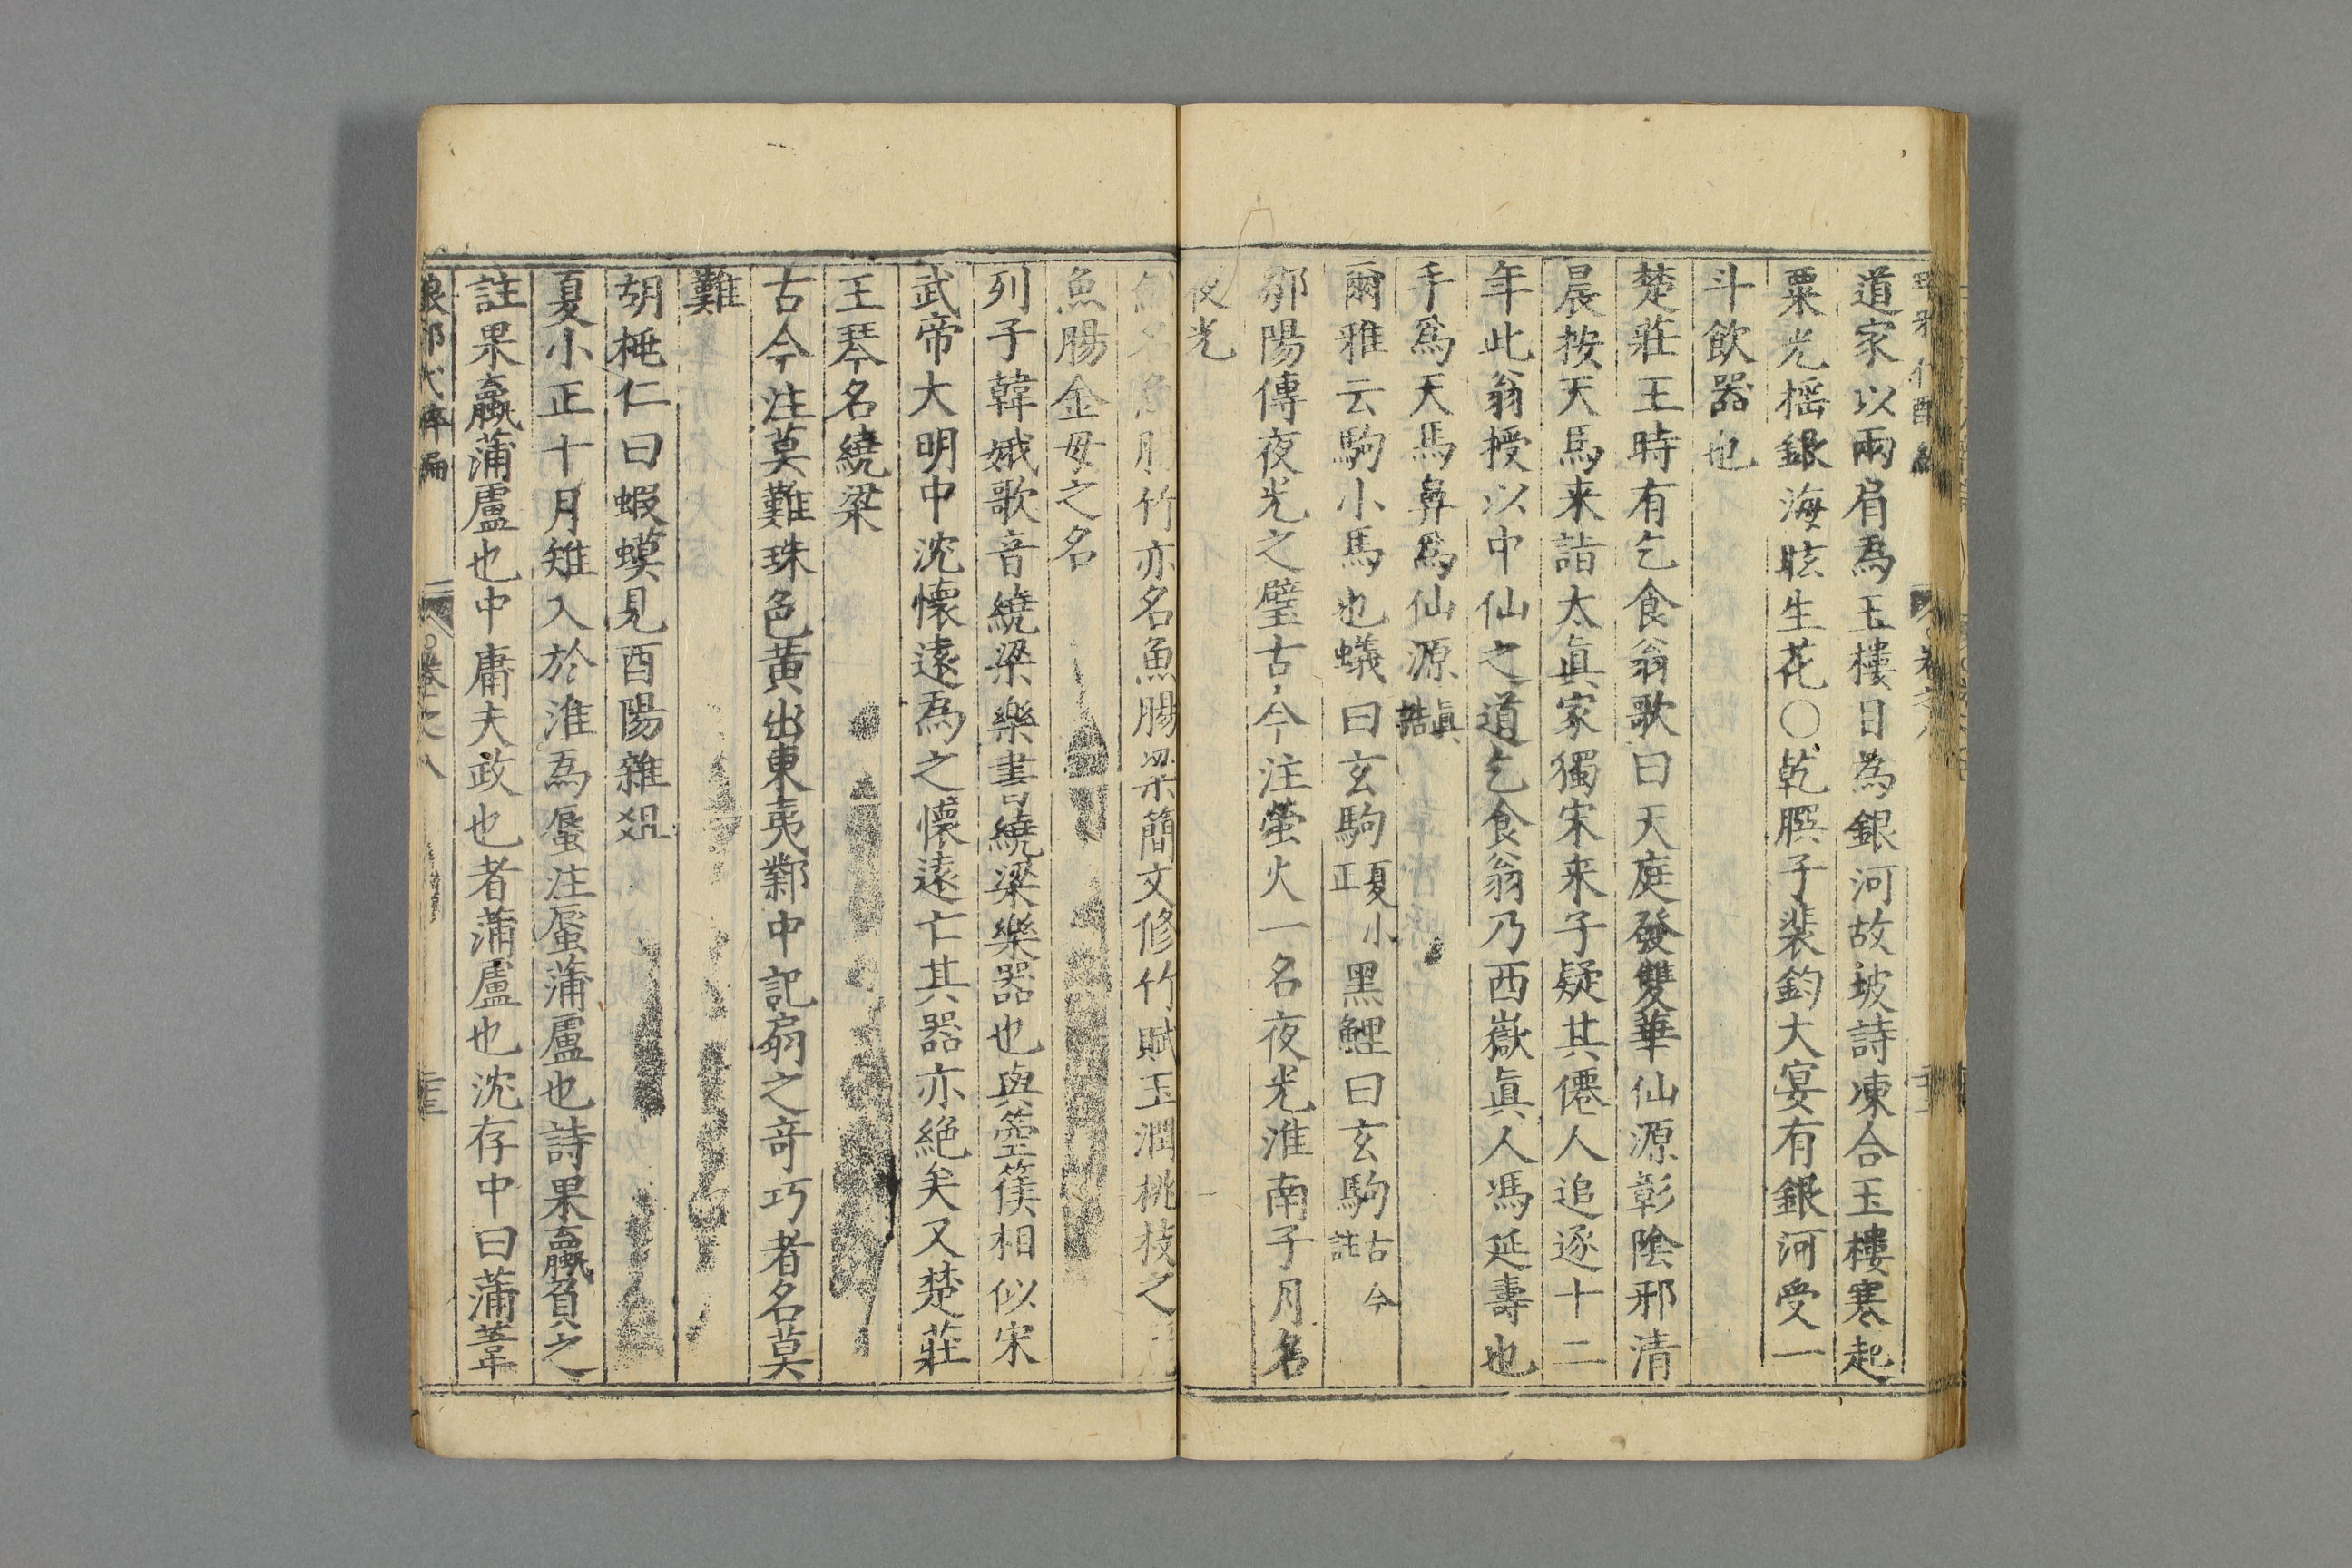 道家以兩肩爲玉樓目為銀河故坡詩凍合玉樓寒起
粟光搖銀海眩生花○乾𦠆子裴鈞大宴有銀河受一
斗飲器也
楚莊王時有乞食翁歌曰天庭發雙華仙源彰陰邪清
晨按天馬来詣太眞家獨宋来子疑其僊人追逐十二
年此翁授以中仙之道乞食翁乃西嶽眞人馮延壽也
手爲天馬鼻爲仙源眞誥
爾雅云駒小馬也蟻曰玄駒夏小正黑鯉曰玄駒古今註
鄒陽傳夜光之璧古今注螢火一名夜光淮南子月名
夜光
竹亦名魚腸梁簡文修竹賦玉潤桃枝之
魚腸金母之名
列子韓娥歌音繞梁樂書曰繞梁樂器也與箜篌相似宋
武帝大明中沈懷遠爲之懷遠亡其器亦絶矣又楚莊
王琴名繞梁
古今注莫難珠色黃出東夷鄴中記扇之竒巧者名莫
難
胡棰仁曰蝦蟆見酉陽雜俎
夏小正十月雉入於淮爲蜃注蜃蒲盧也詩果蠃負之
註果蠃蒲盧也中庸夫政也者蒲盧也沈存中曰蒲葦
琅邪代醉編 卷之八